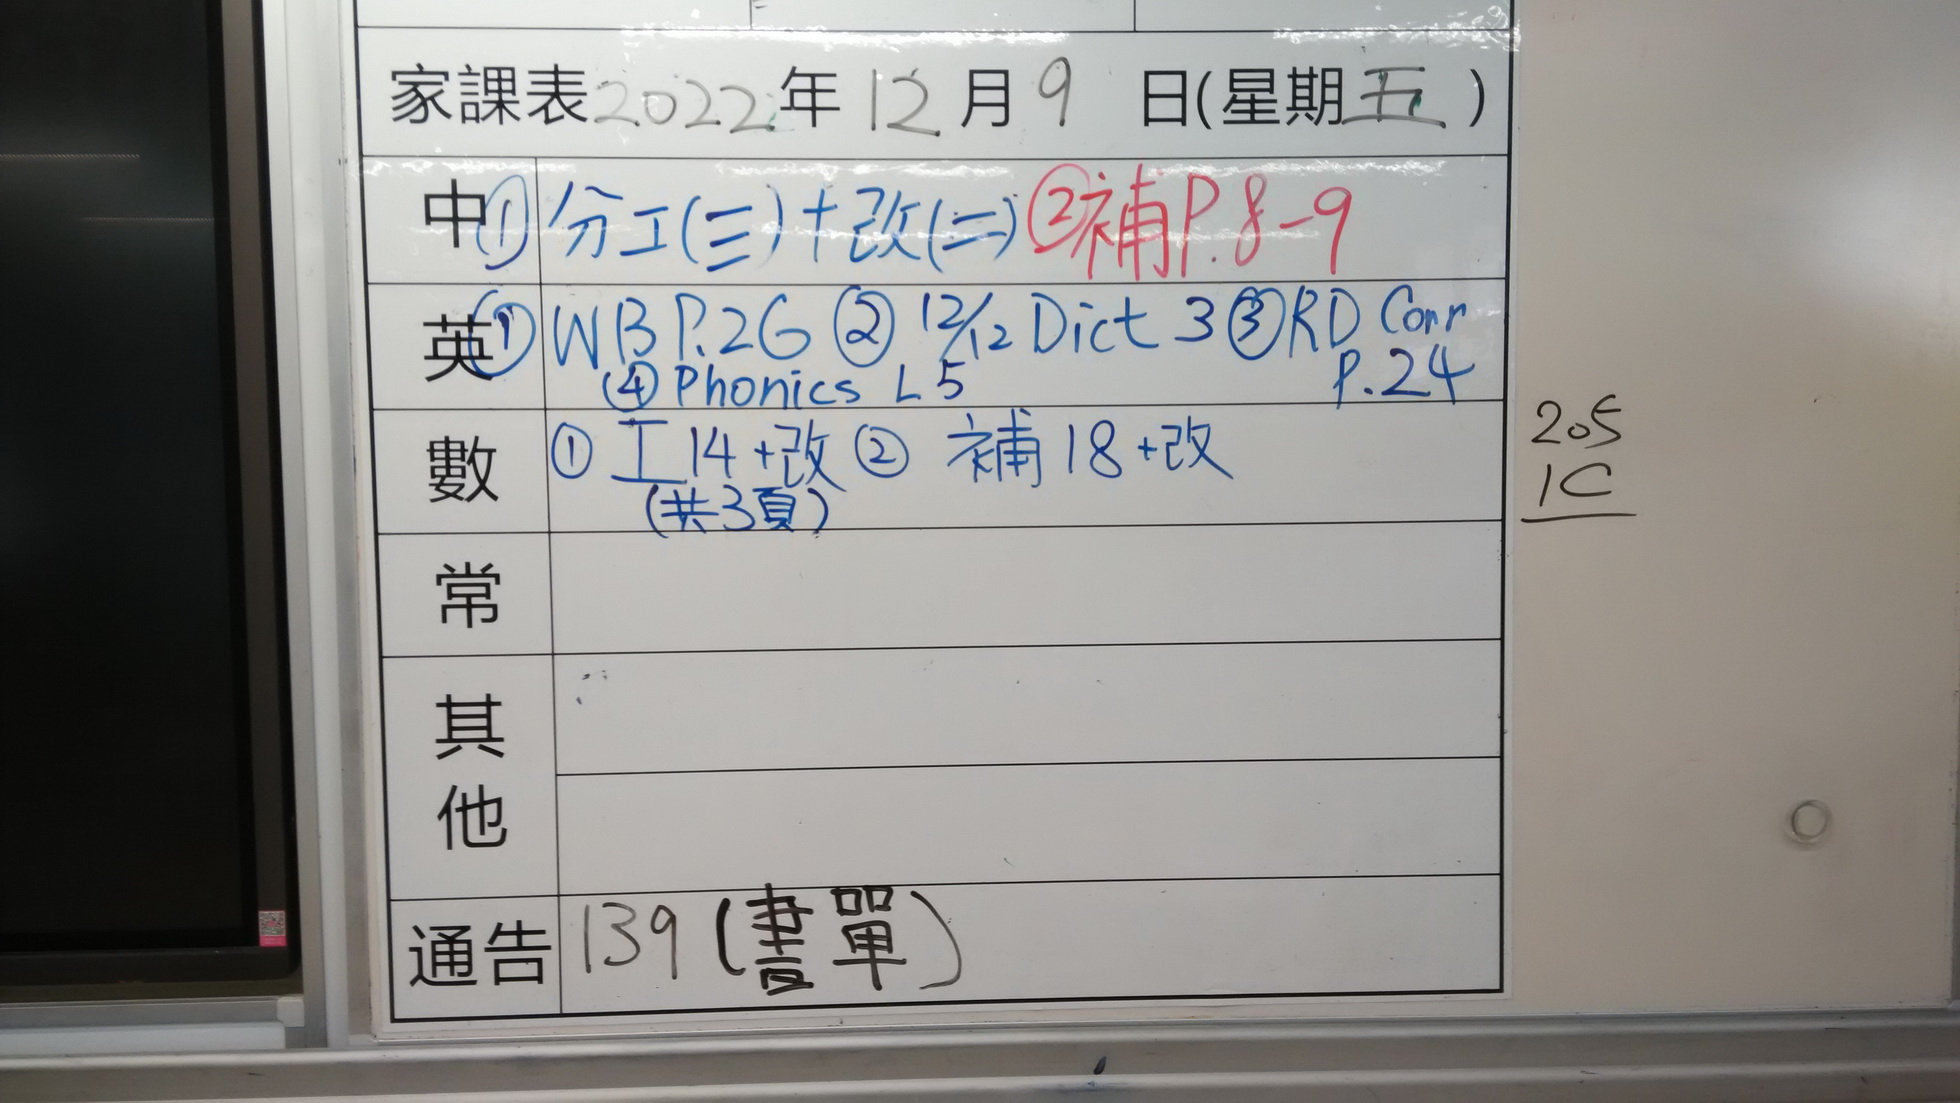 家課表2022年12月9日(星期五)
中 ①分工(三)+改(二) ②補P.8-9
英 ①WB P.26 ② 12/12 Dict 3 ③RD Corr P.24
④Phonics L5
數 ① 工14+改 ② 補18+改
(共3頁)
常
其他
通告 139(書單)
205
1C